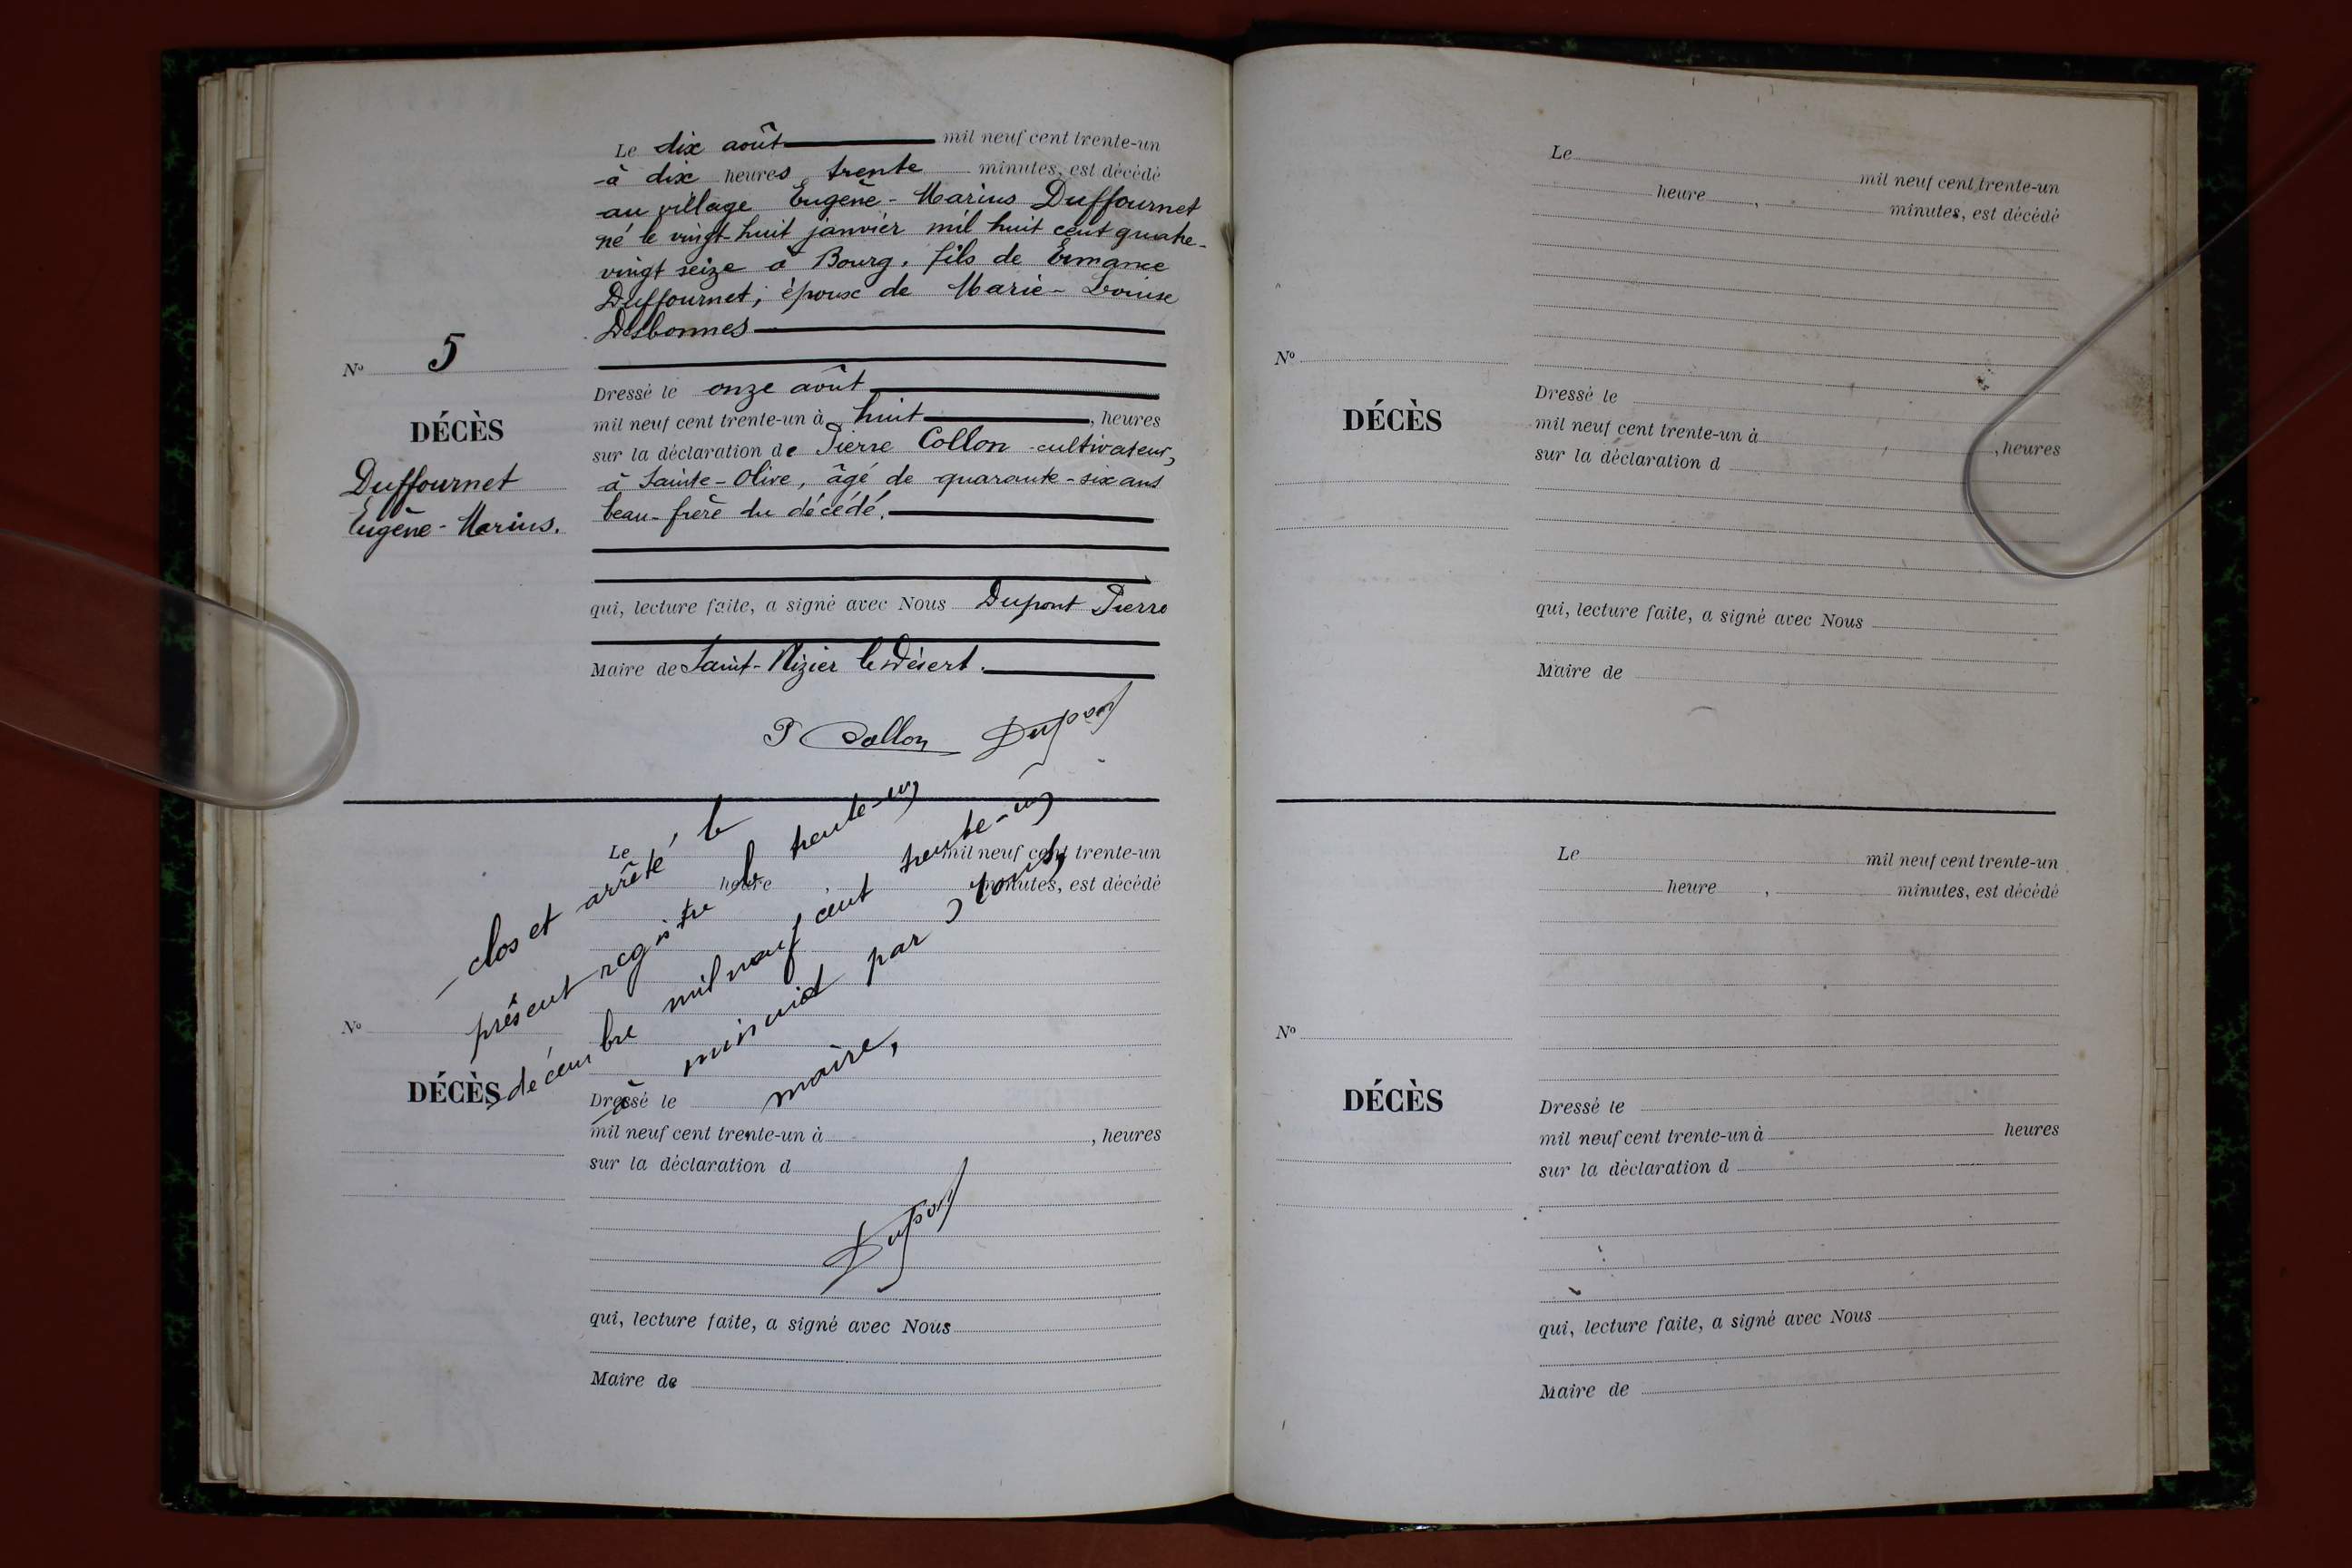 Le dix août mil neuf cent trente-un
à dix heures, trente minutes, est décédé
au village Eugène-Marius Duffournet
né le vingt-huit janvier mil huit cent quatre-
vingt seize à Bourg, fils de Ermance
Duffournet, époux de Marie-Louise
Desbonnes
Nº 5
DÉCÈS
Duffournet
Eugène-Marius.
Dressé le onze août
mil neuf cent trente-un à huit, heures
sur la déclaration de Pierre Collon cultivateur,
à Sainte-Olive, âgé de quarante-six ans
beau-frère du décédé.
qui, lecture faite, a signé avec Nous Dupont Pierre
Maire de Saint-Nizier le Désert.
P Collon Dupont
Le mil neuf cent trente-un
heure , minutes, est décédé
clos et arrêté le
présent registre le trente-un
décembre mil neuf cent trente-un
à minuit par nous
maire,
Nº
DÉCÈS
Dressé le
mil neuf cent trente-un à , heures
sur la déclaration d
Dupont
qui, lecture faite, a signé avec Nous
Maire de
Le mil neuf cent trente-un
heure , minutes, est décédé
Nº
DÉCÈS
Dressé le
mil neuf cent trente-un à , heures
sur la déclaration d
qui, lecture faite, a signé avec Nous
Maire de
Le mil neuf cent trente-un
heure , minutes, est décédé
Nº
DÉCÈS
Dressé le
mil neuf cent trente-un à heures
sur la déclaration d
qui, lecture faite, a signé avec Nous
Maire de